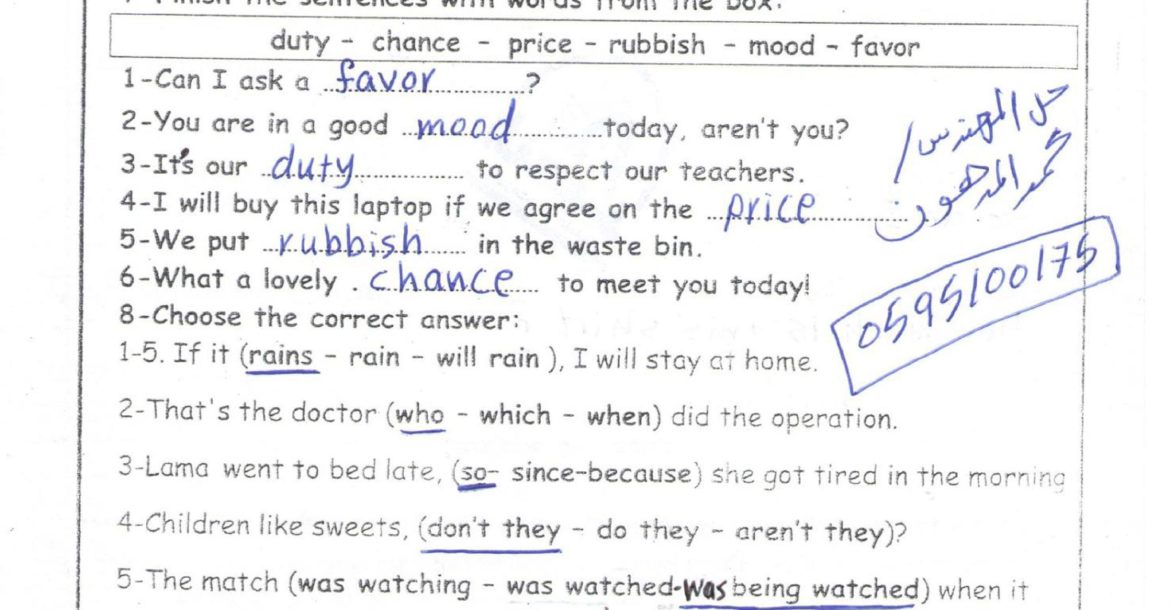 Finish the sentences with words from the box.
duty - chance - price - rubbish - mood - favor
1-Can I ask a ..favor..............?
2-You are in a good ..mood............today, aren't you?
3-It's our ..duty................ to respect our teachers.
4-I will buy this laptop if we agree on the ...price..............
5-We put ...rubbish...... in the waste bin.
6-What a lovely . chance.... to meet you today!
8-Choose the correct answer:
1-5. If it (rains - rain - will rain ), I will stay at home.
2-That's the doctor (who - which - when) did the operation.
3-Lama went to bed late, (so- since-because) she got tired in the morning
4-Children like sweets, (don't they - do they - aren't they)?
5-The match (was watching - was watched-was being watched) when it
حل المهندس/
محمد المدهون
0595100175